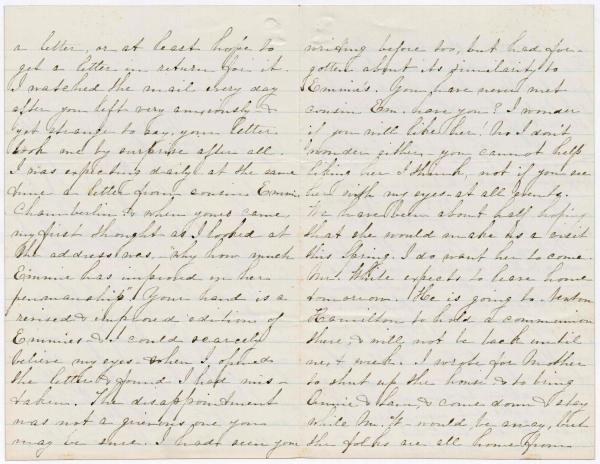 a letter, or at least hope to
get a letter in return for it.
I watched the mail every day
after you left very anxiously &
yet strange to say, your letter
took me by surprise after all.
I was expecting daily at the same
time a letter from cousin Emmie
Chamberlin & when yours came,
my first thought as I looked at
the address was, "Why how much
Emmie has improved in her
penmanship"! Your hand is a
revised & improved edition of
Emmie's & I could scarcely
believe my eyes when I opened
the letter & found I had mis-
taken. The disappointment
was not a grievous one you
may be sure. I had seen your
writing before too, but had for-
gotten about its similarity to
Emmie's. You have never met
cousin Em. have you? I wonder
if you will like her! No I don't
wonder either, you cannot help
liking her I think, not if you see
her with my eyes at all events.
We have been about half hoping
that she would make us a visit
this Spring. I do want her to come.
Mr. White expects to leave home
tomorrow. He is going to Newton
Hamilton to hold a communion
there, & will not be back until
next week. I wrote for Mother
to shut up the house & to bring
Annie & come down & stay
while Mr. W. would be away, but
the folks are all home from